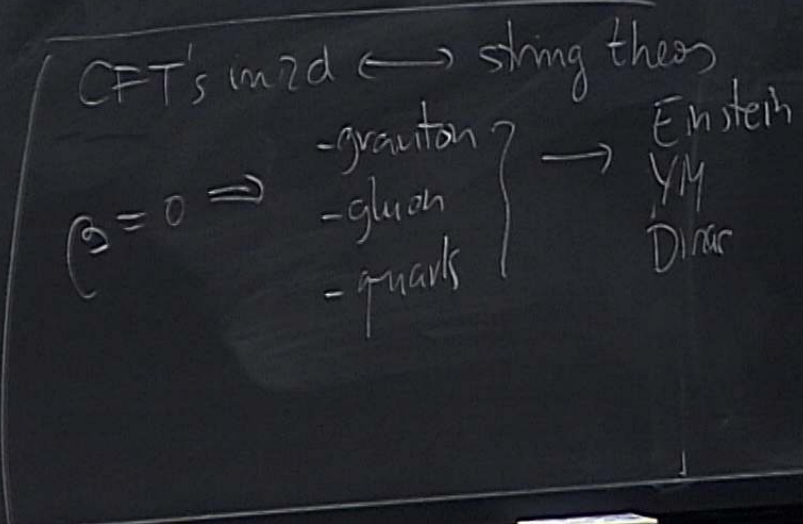 CFT's in 2d ⟷ string theory
β = 0 ⇒
- graviton
- gluon
- quark
} →
Einstein
YM
Dirac